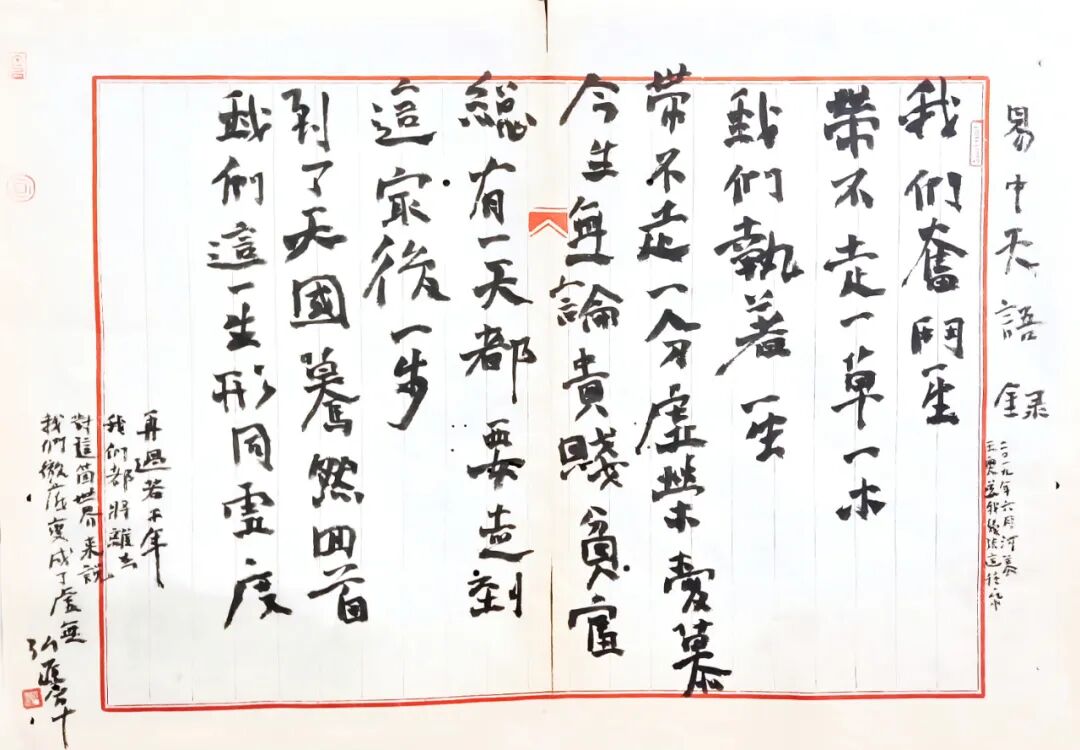 易中天語録
二〇一九年六月河
我們奮鬥一生
帶不走一草一木
我們執著一生
帶不走一分虛榮愛慕
今生無論貴賤貧富
總有一天都要走到
這最後一步
到了天國驀然回首
我們這一生形同虛度
再過若干年
我們都將離去
對這箇世界来説
我們徹底變成了虛無